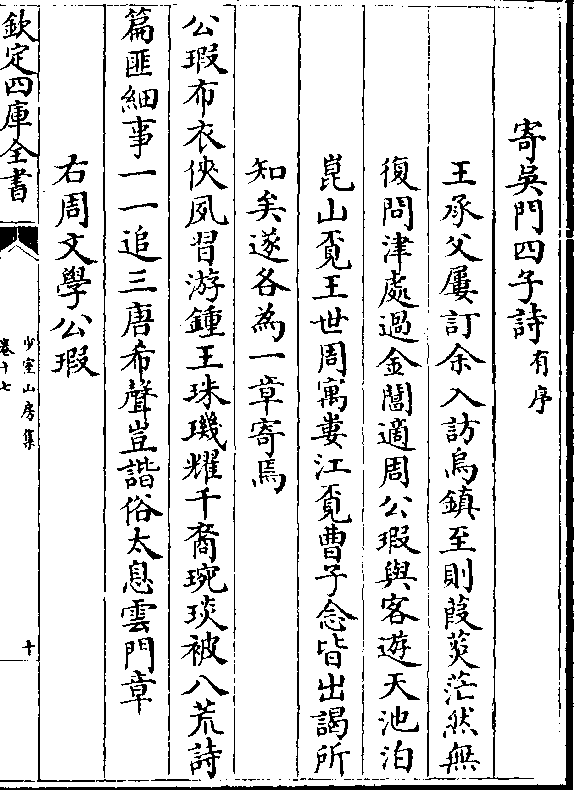 寄吳門四子詩有序
王承父屢訂余入訪烏鎮至則葭菼茫然無
復問津處過金閶適周公瑕與客遊天池泊
崑山覔王世周寓婁江覔曹子念皆出謁所
知矣遂各為一章寄焉
公瑕布衣俠夙習游鍾王珠璣耀千裔琬琰被八荒詩
篇匪細事一一追三唐希聲豈諧俗太息雲門章
右周文學公瑕
欽定四庫全書
少室山房集
卷十七
十